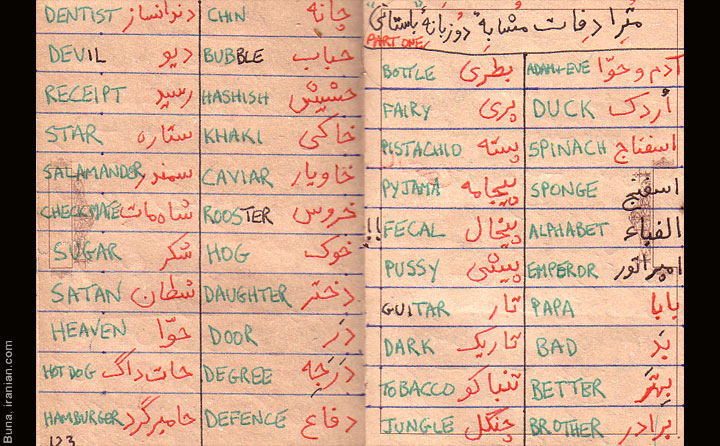 مترادفات مشابهٔ دوزبانهٔ "باستانی"
PART ONE
ADAM+EVE آدم و حوّا
DUCK اُردک
SPINACH اسفناج
SPONGE اسفنج
ALPHABET الفباء
EMPEROR امپراتور
PAPA بابا
BAD بَد
BETTER بهتَر
BROTHER برادر
BOTTLE بطری
FAIRY پری
PISTACHIO پسته
PYJAMA پیجامه
!! FECAL پیخال
PUSSY پیشی
GUITAR تار
DARK تاریک
TOBACCO تنباکو
JUNGLE جنگل
CHIN چانه
BUBBLE حباب
HASHISH حشیش
KHAKI خاکی
CAVIAR خاویار
ROOSTER خروس
HOG خوک
DAUGHTER دختر
DOOR دَر
DEGREE دَرَجه
DEFENCE دفاع
DENTIST دندانساز
DEVIL دیو
RECEIPT رسید
STAR ستاره
SALAMANDER سمندر
CHECKMATE شاه مات
SUGAR شکر
SATAN شطان
HEAVEN حوّا
HOT DOG حات داگ
HAMBURGER حامبرگرد
123
Buna, iranian.com